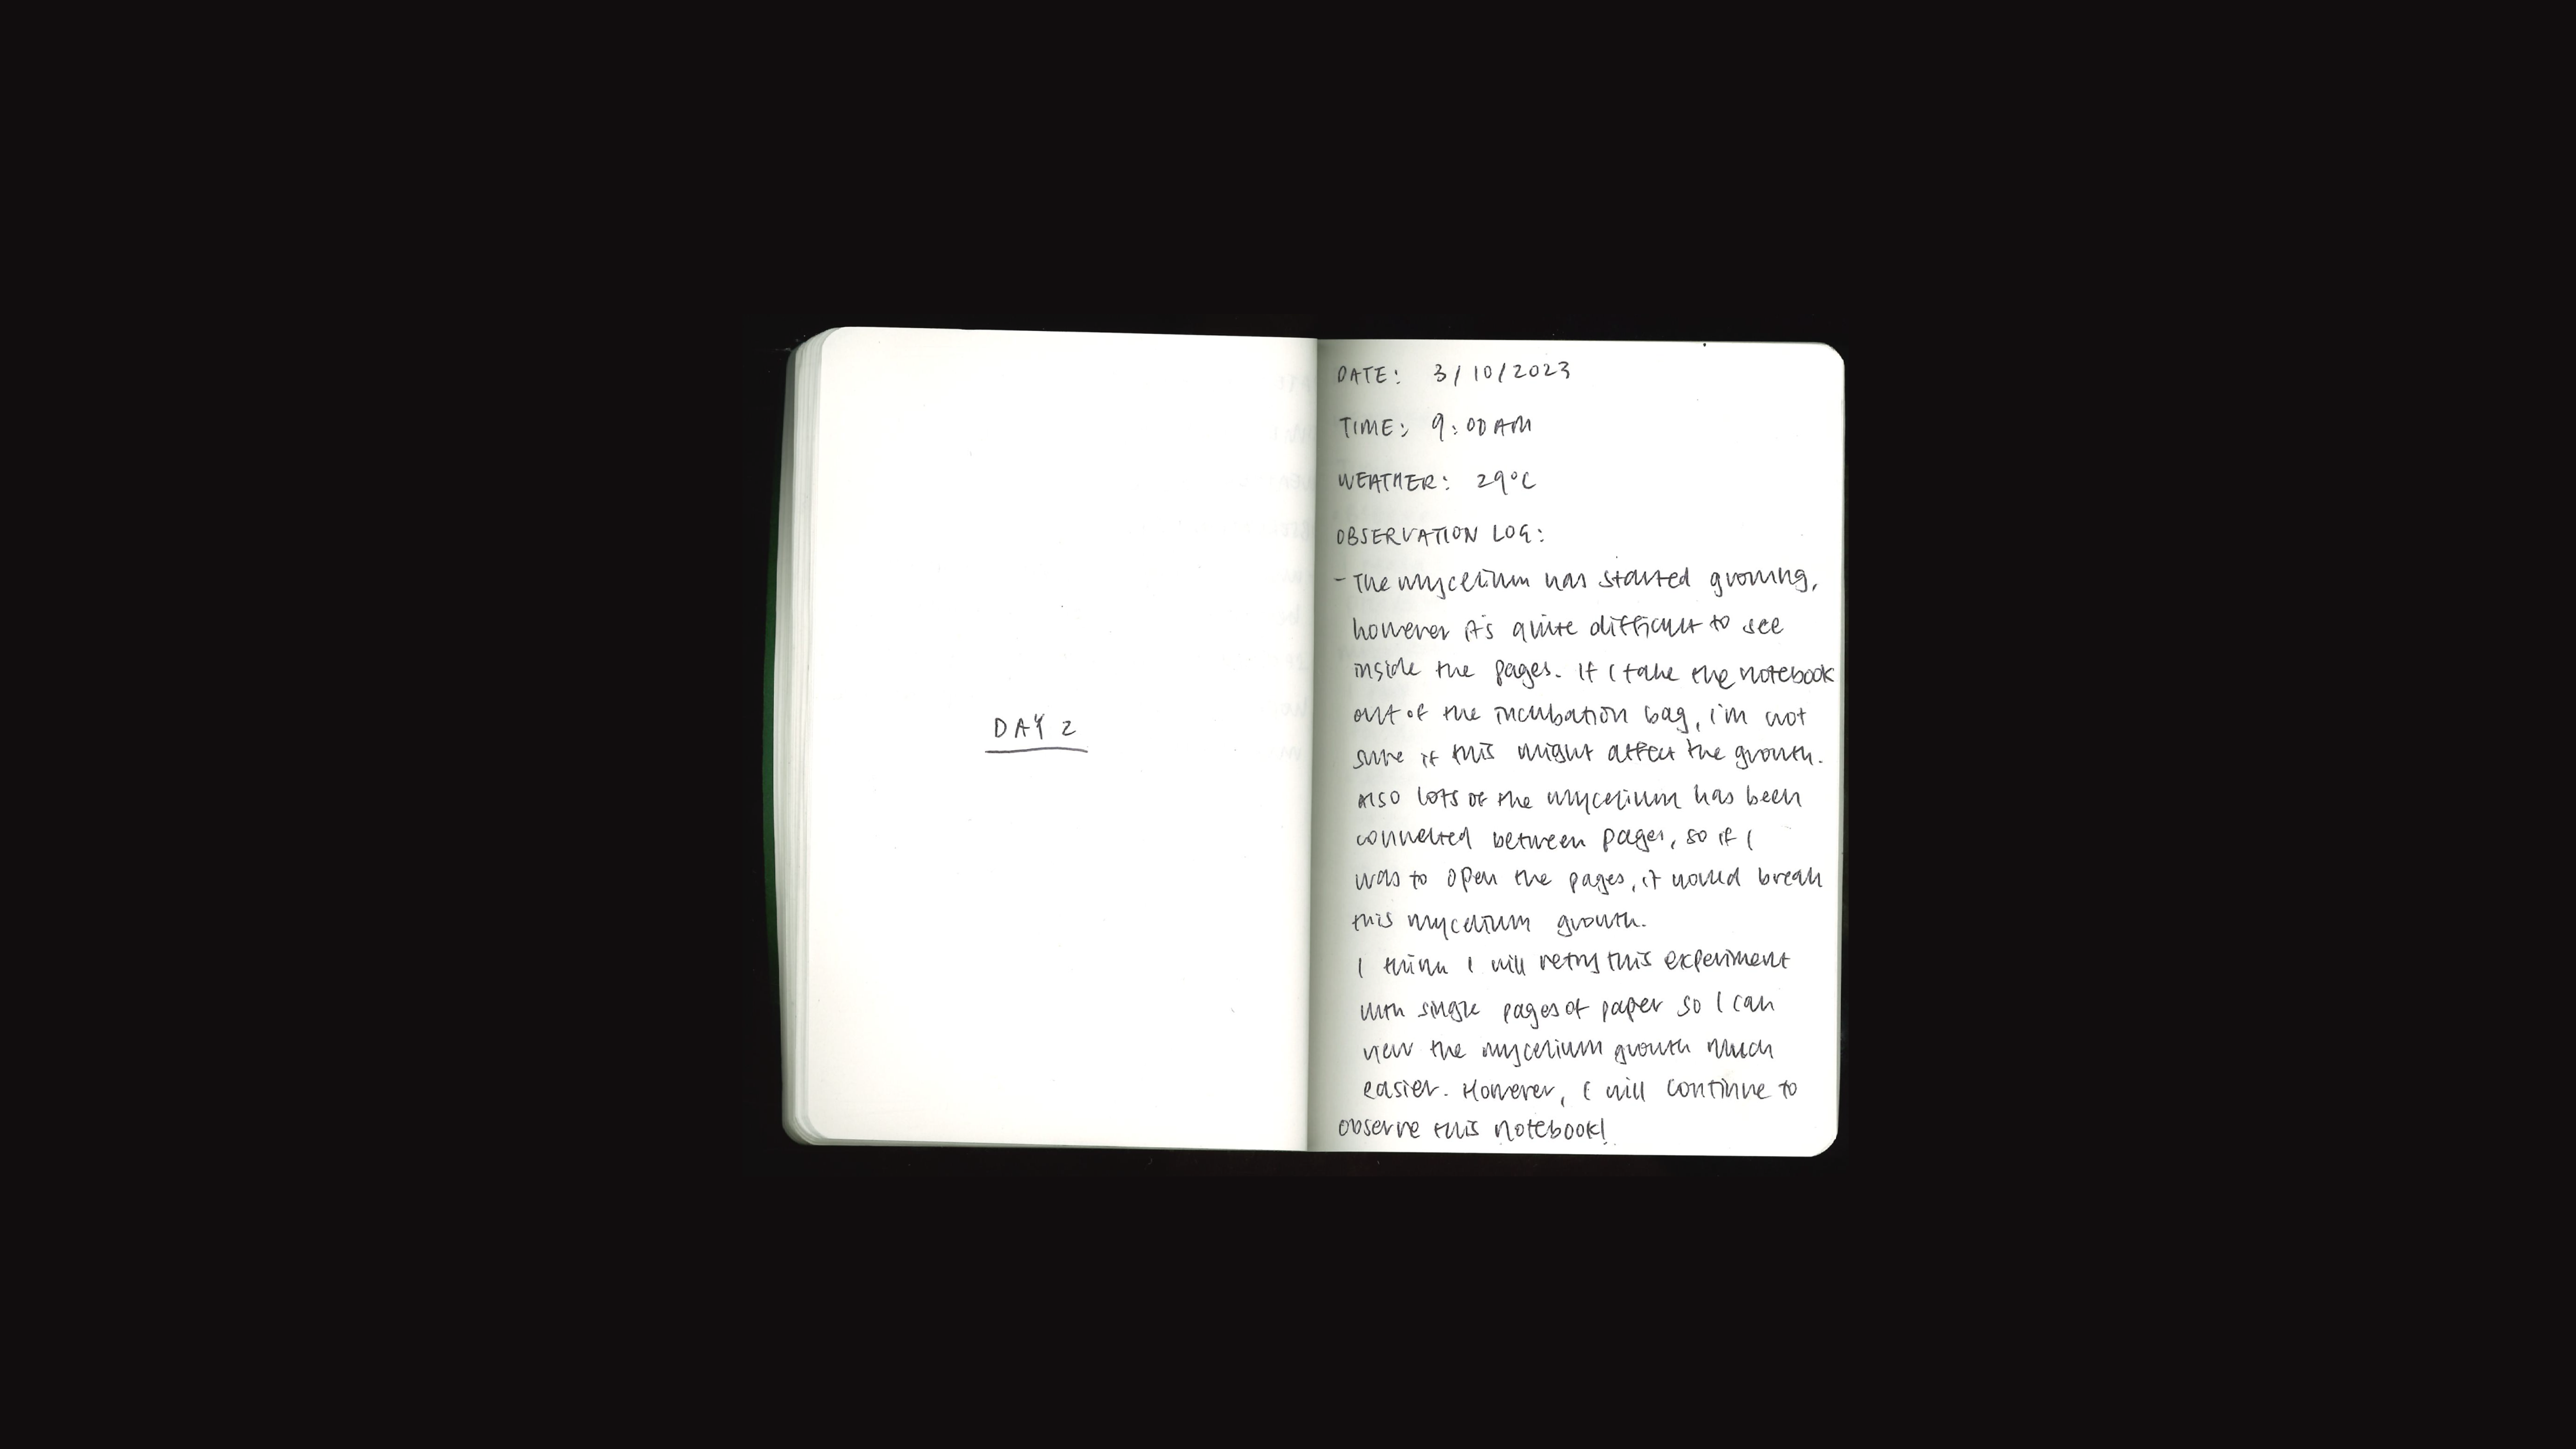 DAY 2
DATE: 3/10/2023
TIME: 9:00AM
WEATHER: 29°C
OBSERVATION LOG:
- The mycelium has started growing,
however it's quite difficult to see
inside the pages. If I take the notebook
out of the incubation bag, i'm not
sure if this might affect the growth.
Also lots of the mycelium has been
connected between pages, so if I
was to open the pages, it would break
this mycelium growth.
I think I will retry this experiment
with single pages of paper so I can
view the mycelium growth much
easier. However, I will continue to
observe this notebook!